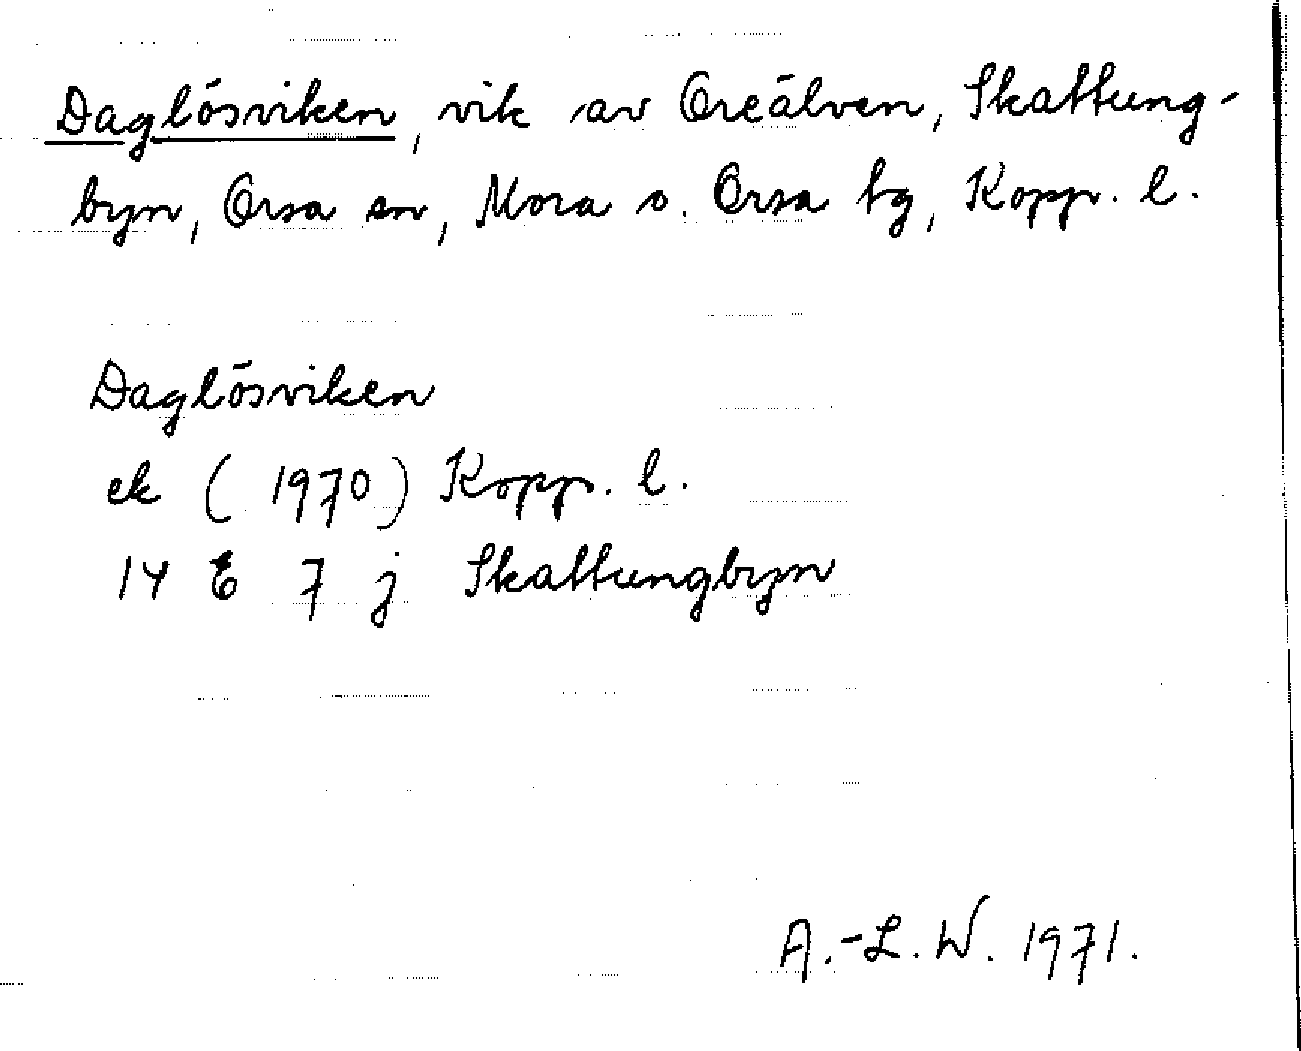 Daglösviken, vik av Oreälven, Skattung-
byn, Orsa sn, Mora o. Orsa tg, Kopp. l.
Daglösviken
ek (1970) Kopp. l.
14 E 7 j Skattungbyn
A.-L. W. 1971.